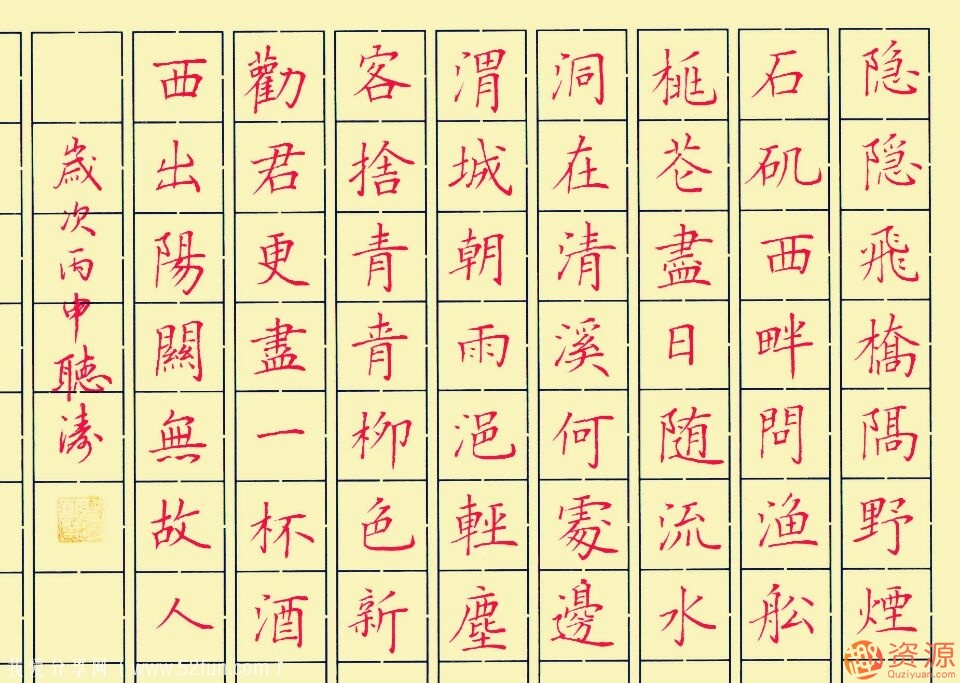 隐隐飛橋隔野煙
石矶西畔問渔舩
桃花盡日随流水
洞在清溪何處邊
渭城朝雨浥輕塵
客捨青青柳色新
勸君更盡一杯酒
西出陽關無故人
歲次丙申聽濤
资源
Quziyuan.com